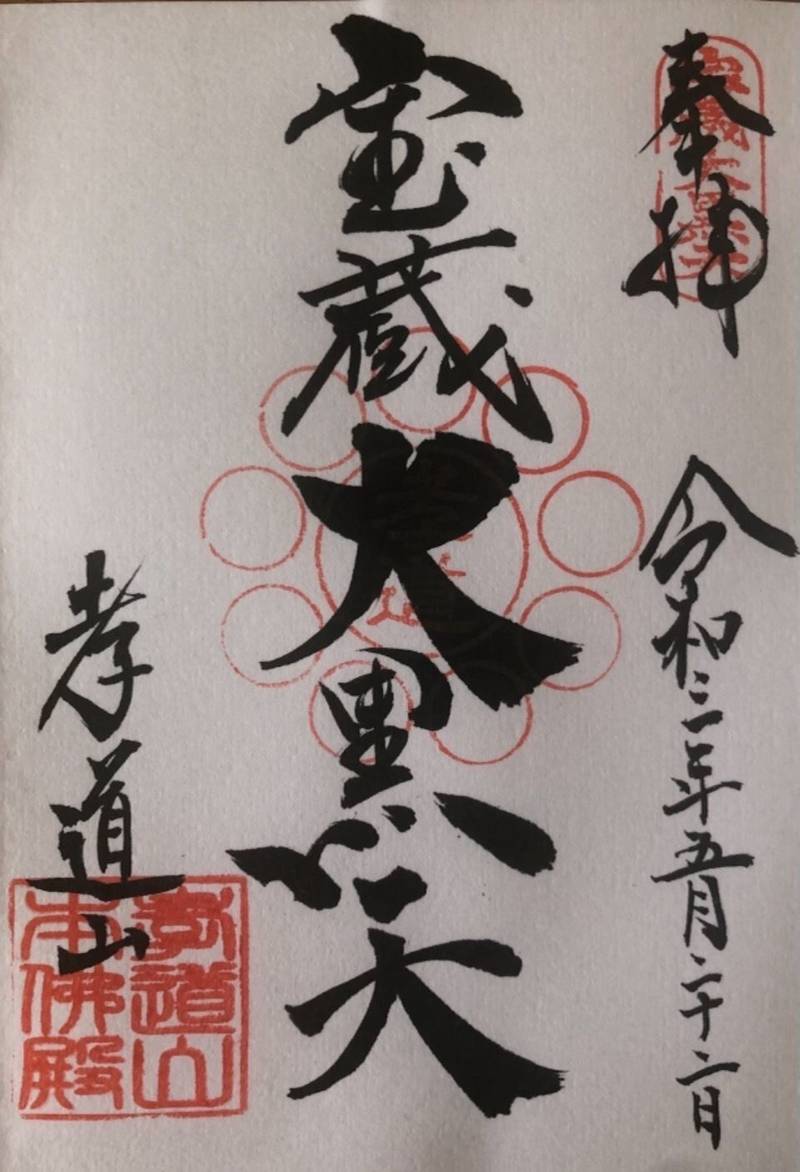 奉拝
令和三年五月二十二日
宝蔵大黒天
孝道山
孝道山
本佛殿